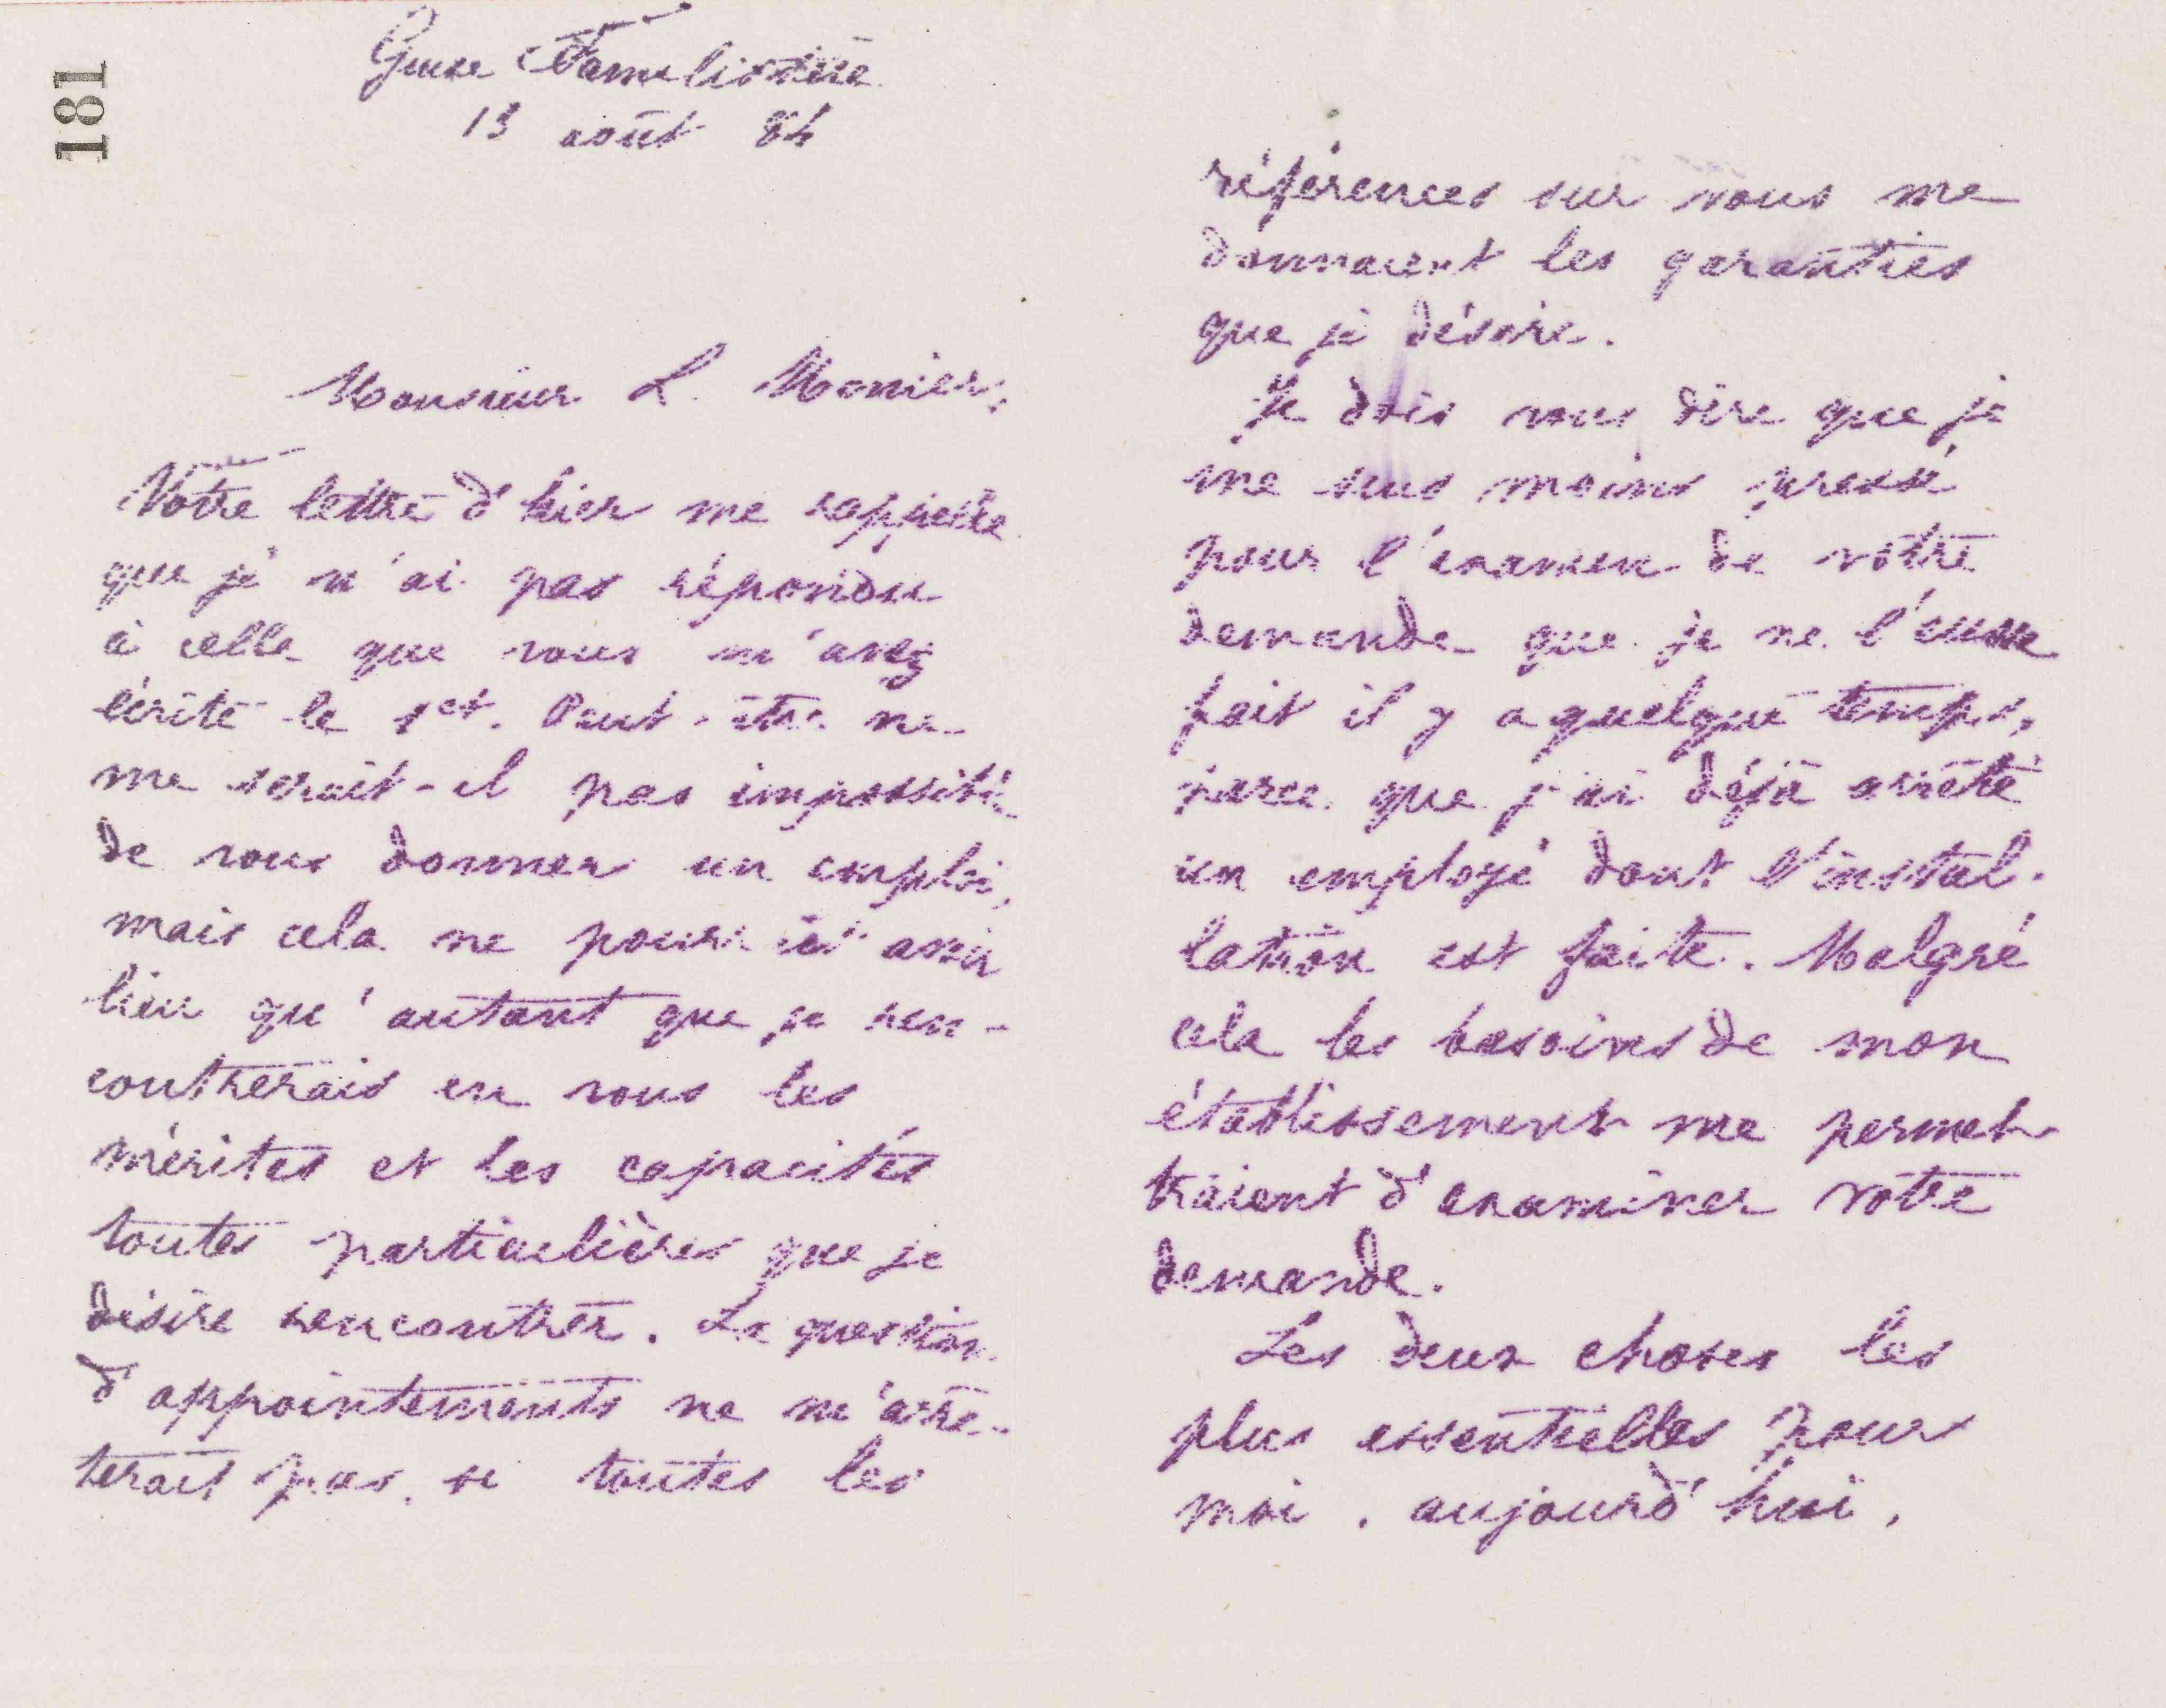 181
Guise Familistère
13 août 84
Monsieur L. Monier,
Votre lettre d'hier me rappelle
que je n'ai pas répondu
à celle que vous m'avez
écrite le 1er. Peut-être ne
me serait-il pas impossible
de vous donner un emploi,
mais cela ne pourrait avoir
lieu qu'autant que je ren-
contrerais en vous les
mérites et les capacités
toutes particulières que je
désire rencontrer. La question
d'appointements ne m'arrê-
terait pas, si toutes les
références sur vous me
donnaient les garanties
que je désire.
Je dois vous dire que je
me sens moins pressé
pour l'examen de votre
demande que je ne l'eusse
fait il y a quelque temps,
parce que j'ai déjà arrêté
un employé dont l'instal-
lation est faite. Malgré
cela les besoins de mon
établissement me permet-
traient d'examiner votre
demande.
Les deux choses les
plus essentielles pour
moi, aujourd'hui,